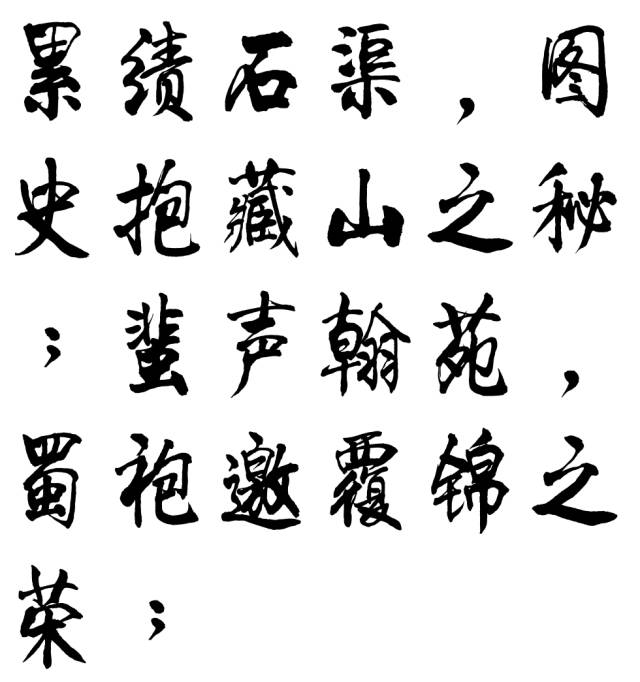 累绩石渠，图
史抱藏山之秘
；蜚声翰苑，
蜀袍邀覆锦之
荣；